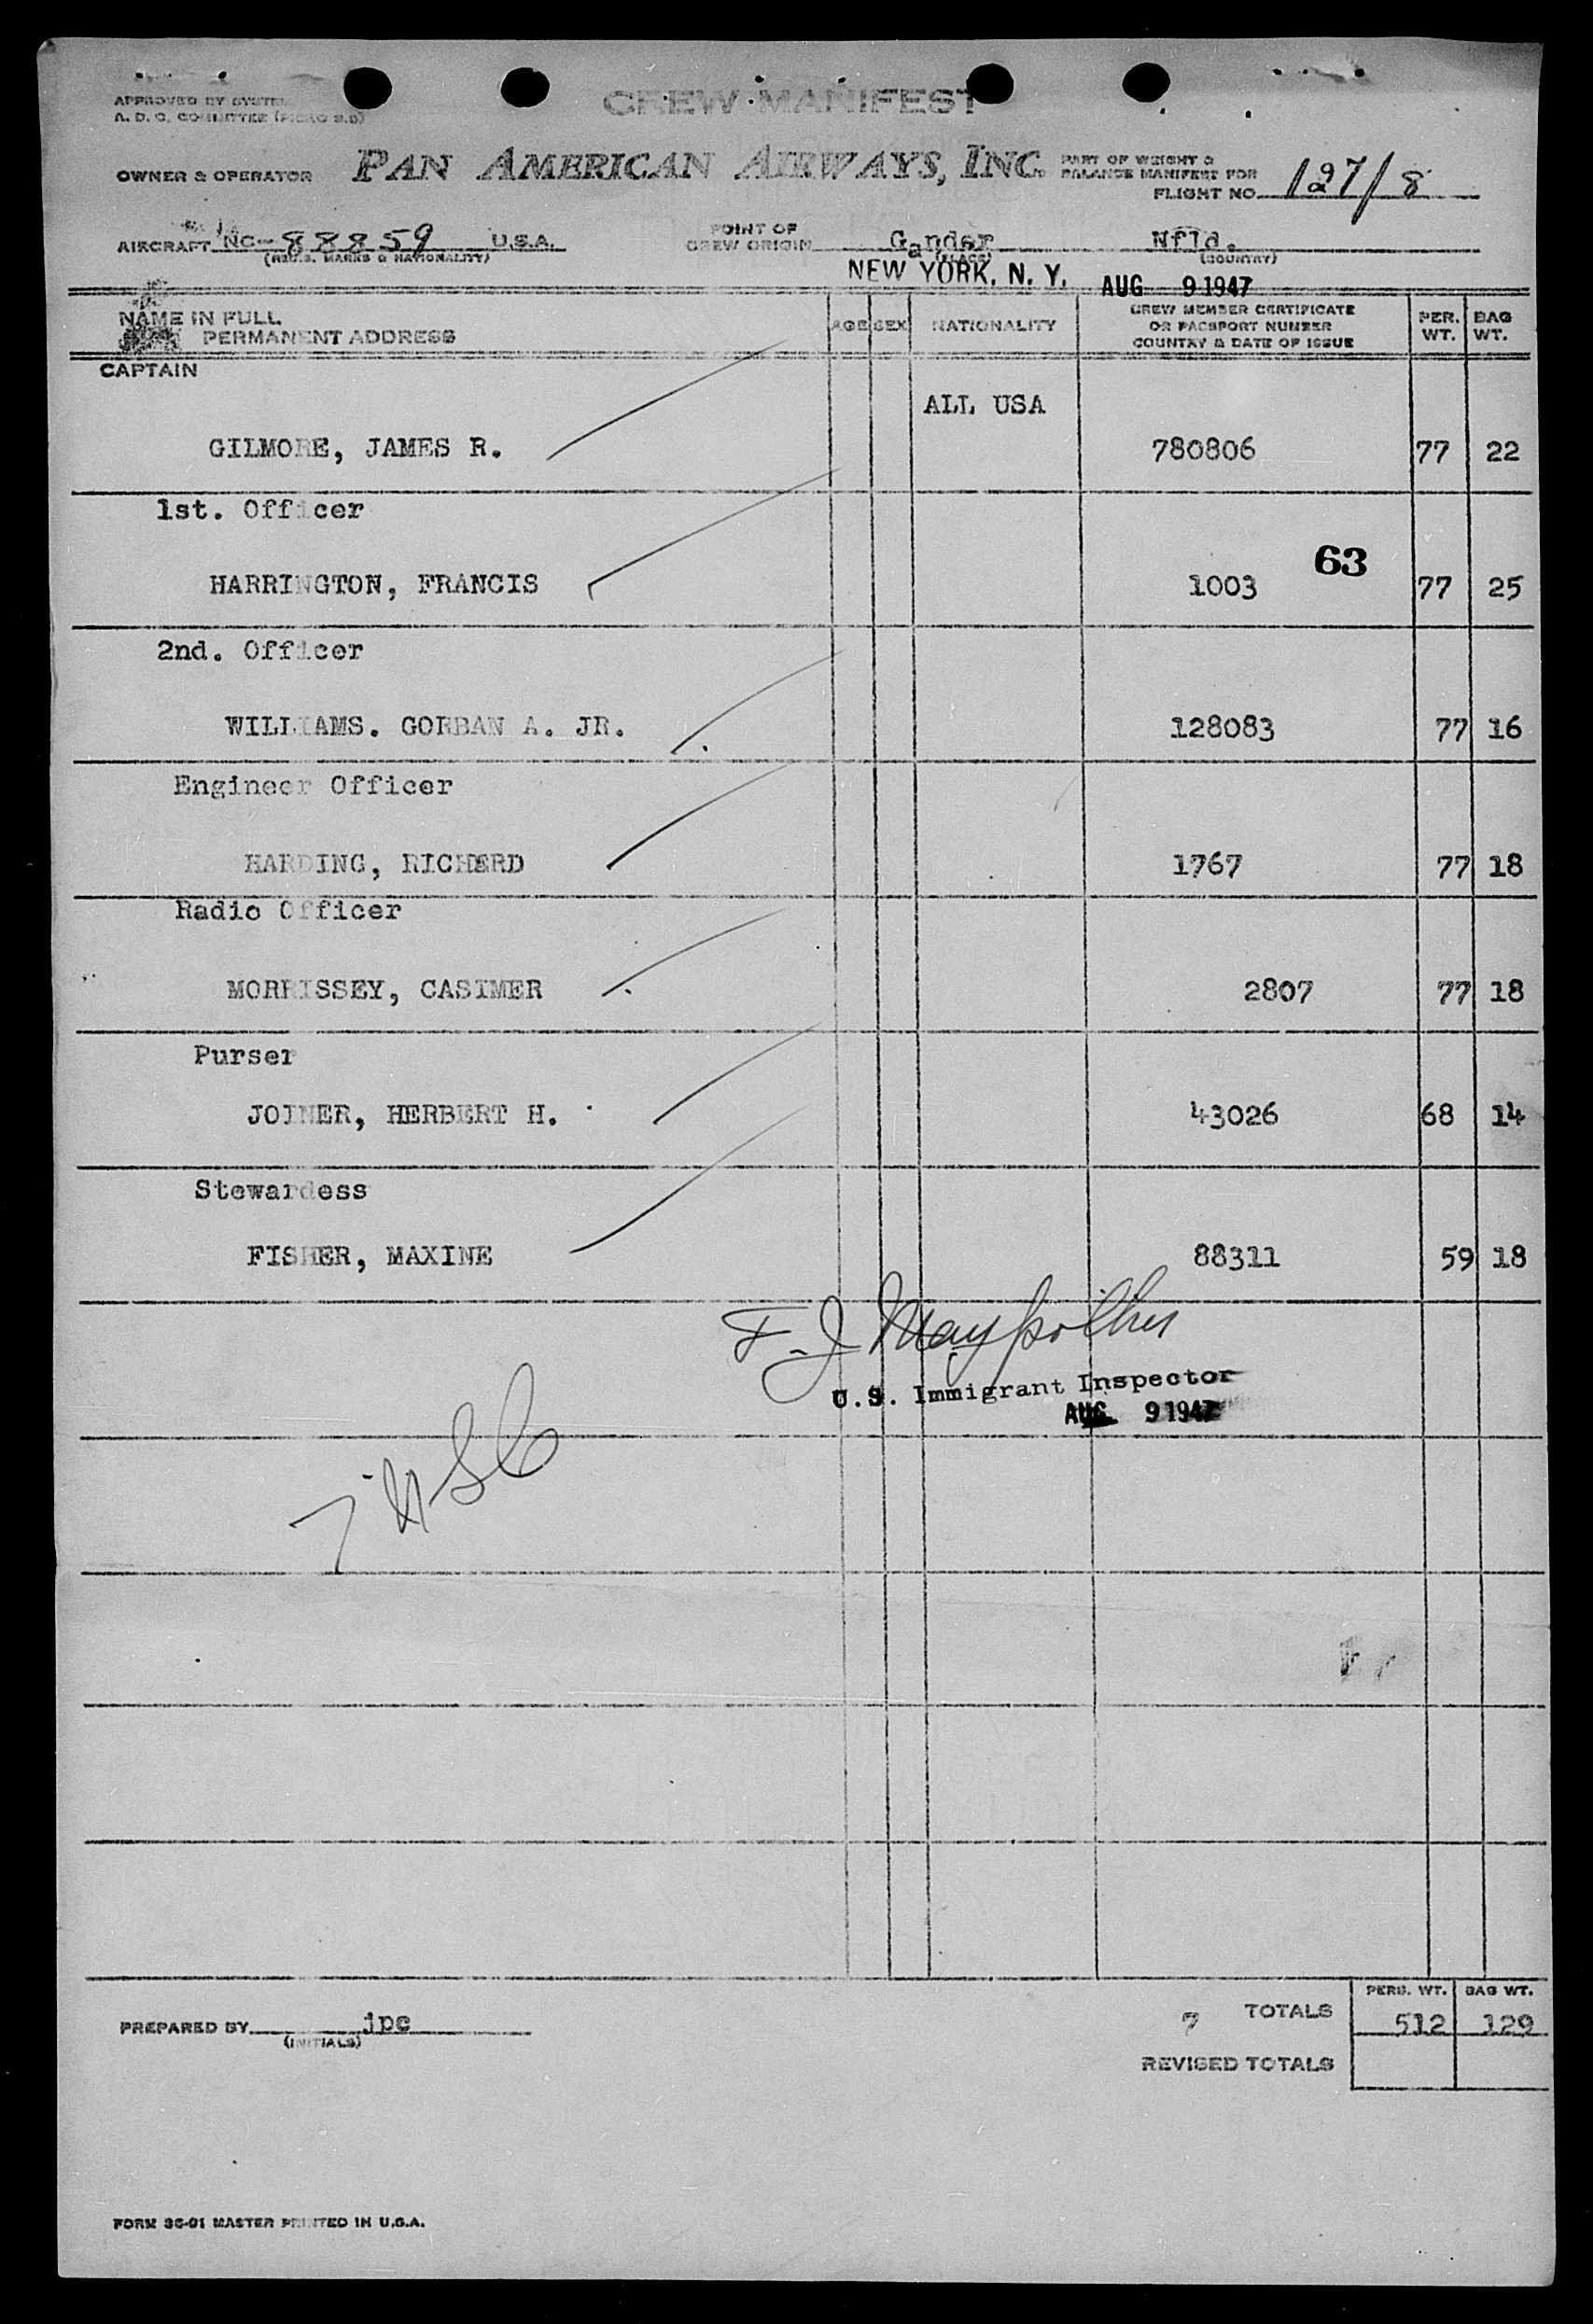 CREW MANIFEST
APPROVED BY SYSTEM
A. D. C. COMMITTEE
OWNER & OPERATOR PAN AMERICAN AIRWAYS, INC. PART OF WEIGHT & BALANCE MANIFEST FOR FLIGHT NO. 127/8
AIRCRAFT NC-88859 U.S.A. POINT OF CREW ORIGIN Gander Nfld.
(REG. MARKS & NATIONALITY) (PLACE) (COUNTRY)
NEW YORK, N. Y. AUG 9 1947
NAME IN FULL
PERMANENT ADDRESS AGE SEX NATIONALITY CREW MEMBER CERTIFICATE OR PASSPORT NUMBER COUNTRY & DATE OF ISSUE PER. WT. BAG WT.
CAPTAIN
ALL USA
GILMORE, JAMES R. 780806 77 22
1st. Officer
63
HARRINGTON, FRANCIS 1003 77 25
2nd. Officer
WILLIAMS. GORBAN A. JR. 128083 77 16
Engineer Officer
HARDING, RICHARD 1767 77 18
Radio Officer
MORRISSEY, CASIMER 2807 77 18
Purser
JOINER, HERBERT H. 43026 68 14
Stewardess
FISHER, MAXINE 88311 59 18
F. J.
U.S. Immigrant Inspector
AUG 9 1947
7 USC
PERS. WT. BAG WT.
PREPARED BY jpc 7 TOTALS 512 129
(INITIALS)
REVISED TOTALS
FORM 36-01 MASTER PRINTED IN U.S.A.